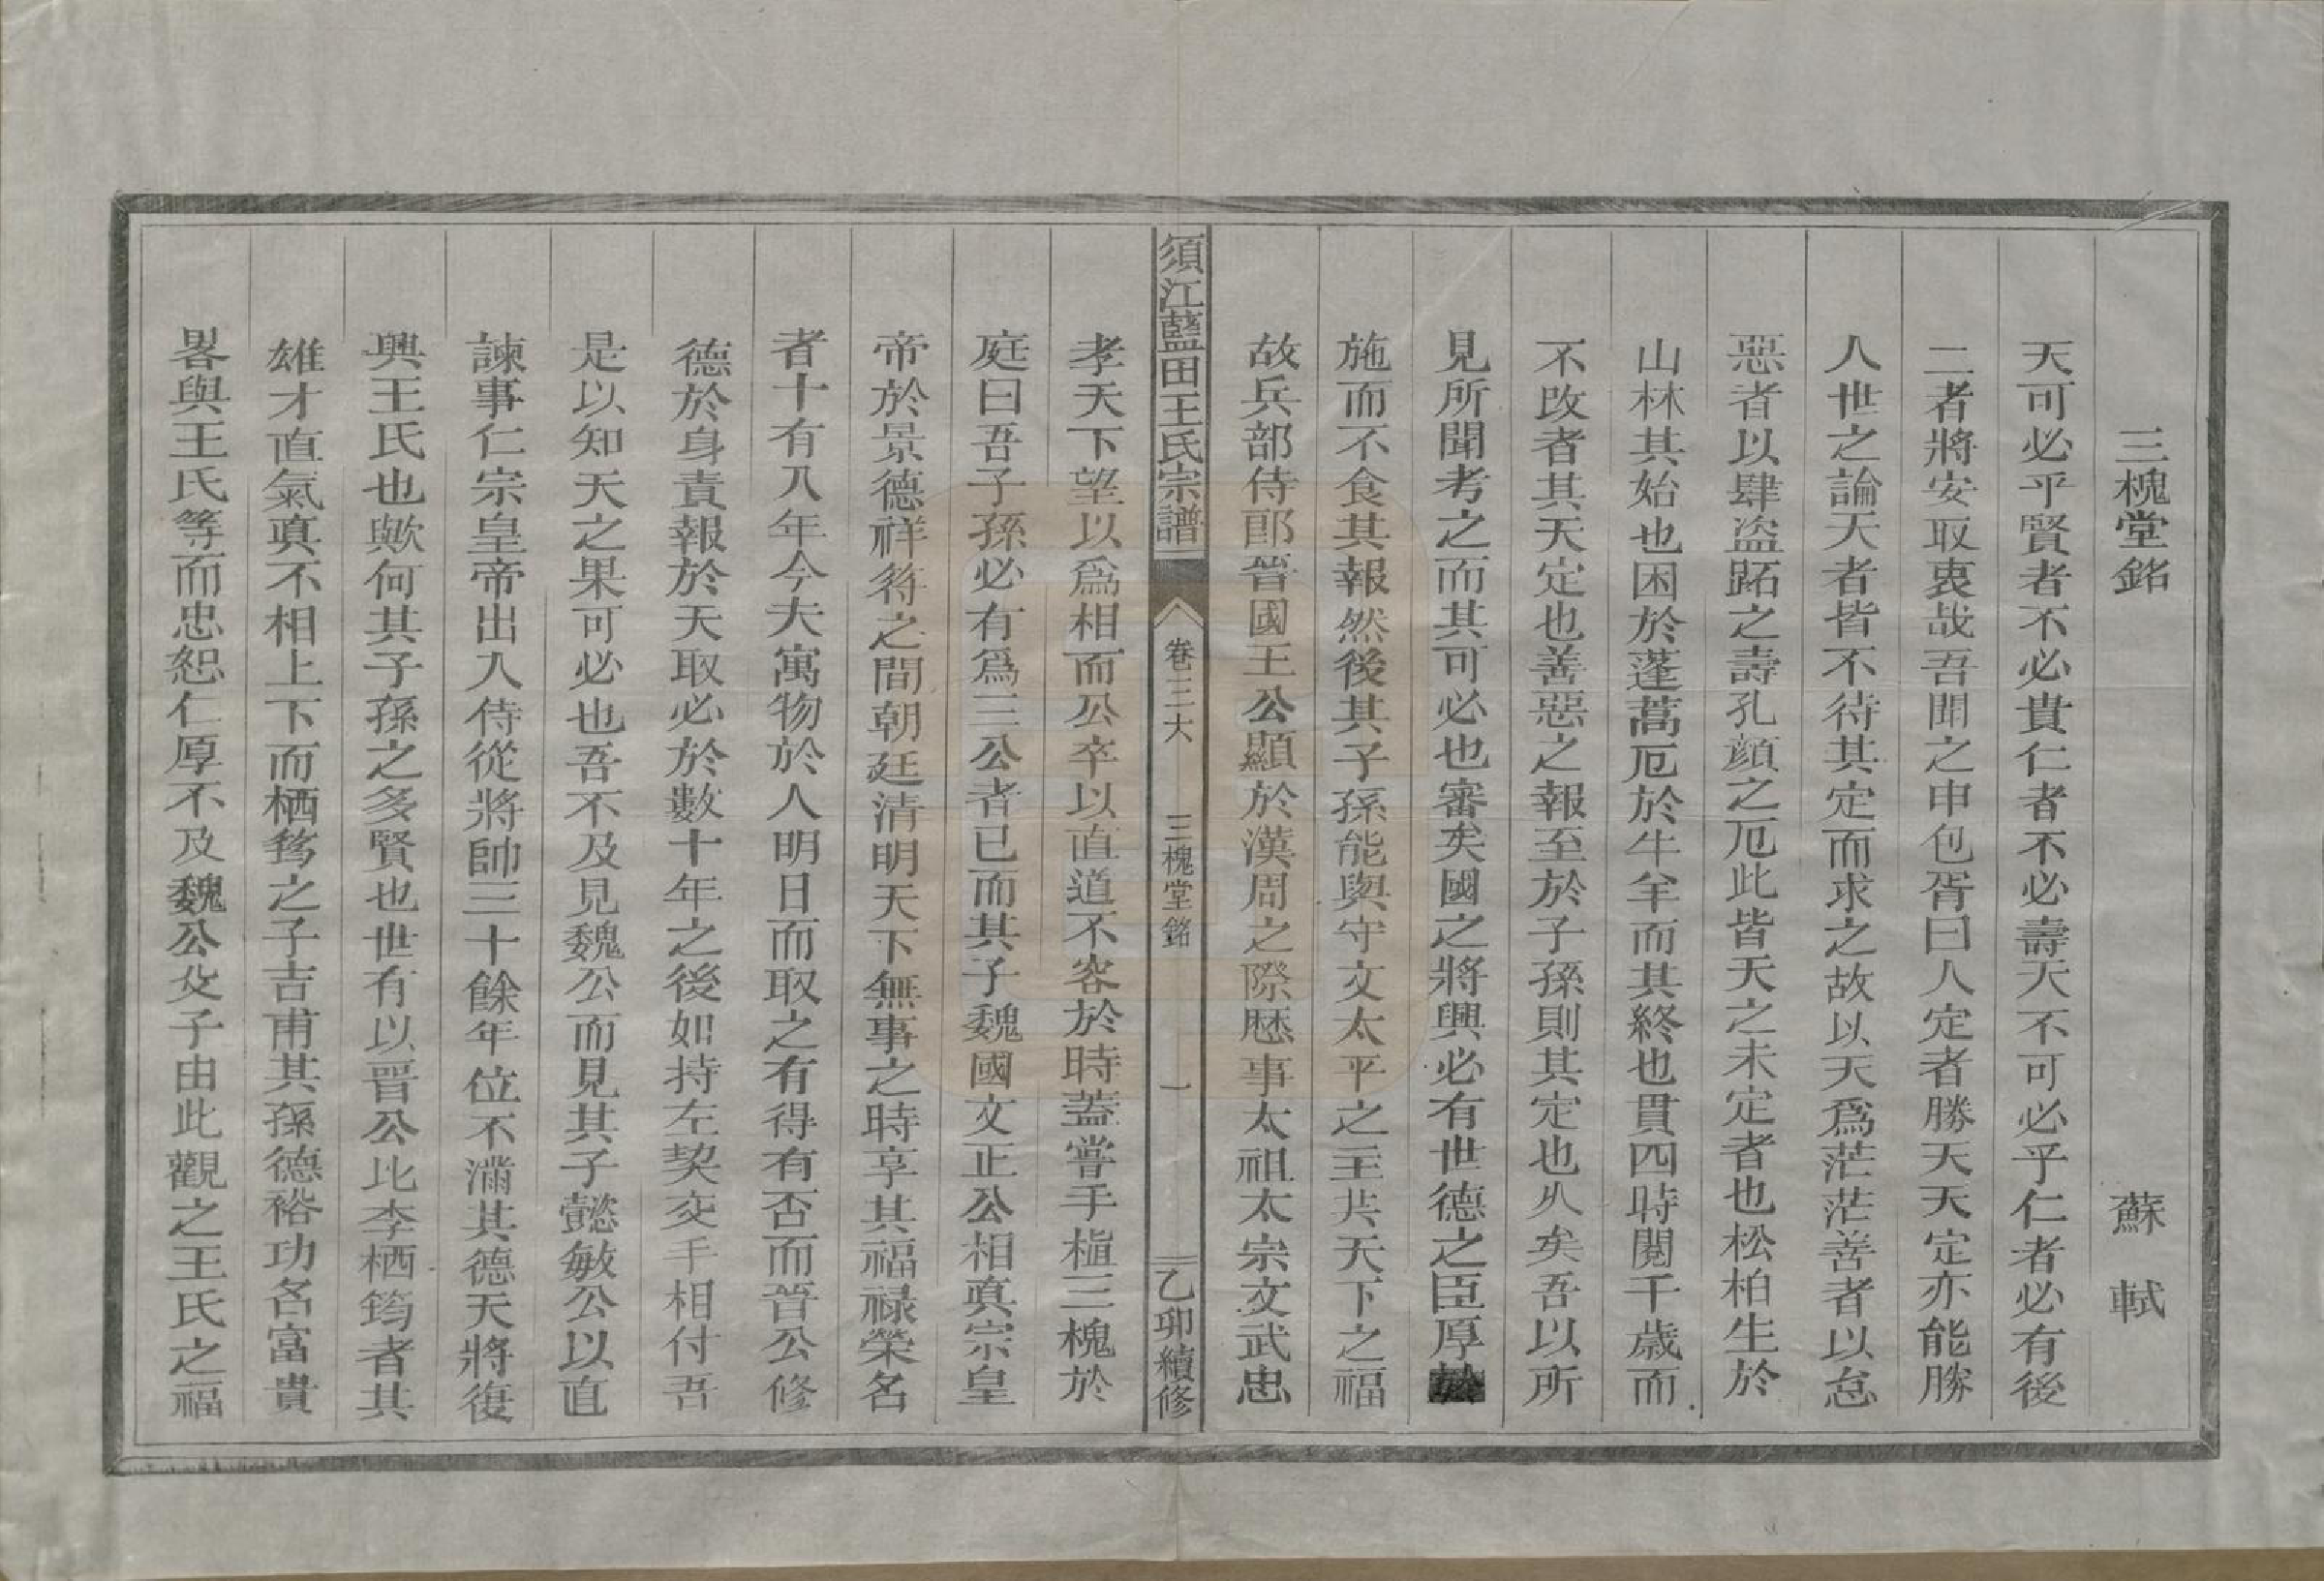 三槐堂銘　蘇軾
天可必乎賢者不必貴仁者不必壽天不可必乎仁者必有後
二者將安取衷哉吾聞之申包胥曰人定者勝天天定亦能勝
人世之論天者皆不待其定而求之故以天爲茫茫善者以怠
惡者以肆盜跖之壽孔顏之厄此皆天之未定者也松柏生於
山林其始也困於蓬蒿厄於牛羊而其終也貫四時閱千歲而
不改者其天定也善惡之報至於子孫則其定也久矣吾以所
見所聞考之而其可必也審矣國之將興必有世德之臣厚於
施而不食其報然後其子孫能與守文太平之主共天下之福
故兵部侍郎晉國王公顯於漢周之際歷事太祖太宗文武忠
須江藍田王氏宗譜　卷三大　三槐堂銘　一　乙卯續修
孝天下望以爲相而公卒以直道不容於時蓋嘗手植三槐於
庭曰吾子孫必有爲三公者已而其子魏國文正公相眞宗皇
帝於景德祥符之間朝廷清明天下無事之時享其福祿榮名
者十有八年今夫寓物於人明日而取之有得有否而晉公修
德於身責報於天取必於數十年之後如持左契交手相付吾
是以知天之果可必也吾不及見魏公而見其子懿敏公以直
諫事仁宗皇帝出入侍從將帥三十餘年位不滿其德天將復
興王氏也歟何其子孫之多賢也世有以晉公比李栖筠者其
雄才直氣眞不相上下而栖筠之子吉甫其孫德裕功名富貴
畧與王氏等而忠恕仁厚不及魏公父子由此觀之王氏之福